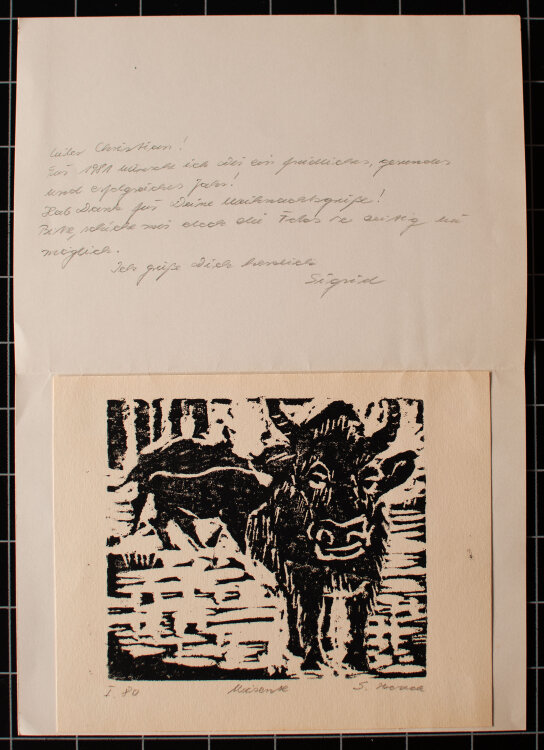 Lieber Christian!
Für 1981 wünsche ich Dir ein friedliches, gesundes
und erfolgreiches Jahr!
Hab Dank für Deine Weihnachtsgrüße!
Bitte, schicke mir doch die Fotos so zeitig wie
möglich.
Ich grüße Dich herzlich
Sigrid
I. 80
S.